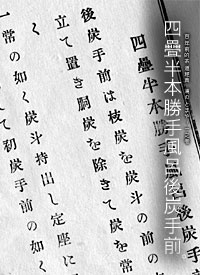 四疊半本勝手風呂後炭手前
四疊半本勝手
後炭手前は枝炭を炭斗の前
立て置き胴炭を除きて炭を常
一常の如く炭斗持出し定座に
て初炭手前の如く